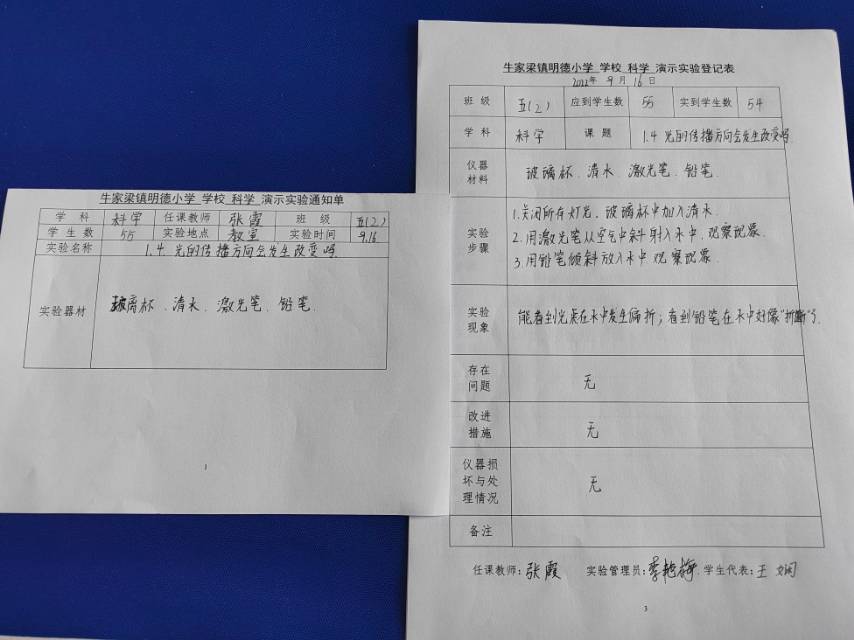 牛家梁镇明德小学 学校 科学 演示实验通知单
学 科 科学 任课教师 张霞 班 级 五(2)
学 生 数 55 实验地点 教室 实验时间 9.16
实验名称 1.4 光的传播方向会发生改变吗
实验器材 玻璃杯、清水、激光笔、铅笔.
1
牛家梁镇明德小学 学校 科学 演示实验登记表
2022年 9 月 16 日
班 级 五(2) 应到学生数 55 实到学生数 54
学 科 科学 课 题 1.4 光的传播方向会发生改变吗.
仪器
材料
玻璃杯、清水、激光笔、铅笔.
实验
步骤
1.关闭所有灯光、玻璃杯中加入清水.
2.用激光笔从空气中斜射入水中,观察现象.
3.用铅笔倾斜放入水中 观察现象.
实验
现象
能看到光点在水中发生偏折;看到铅笔在水中好像"折断"了.
存在
问题
无
改进
措施
无
仪器损
坏与处
理情况
无
备注
任课教师:张霞 实验管理员:李艳梅 学生代表:王娴
3